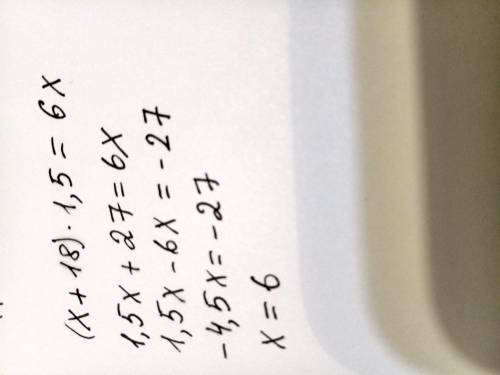 (x + 18) · 1,5 = 6x
1,5x + 27 = 6x
1,5x - 6x = -27
-4,5x = -27
x = 6